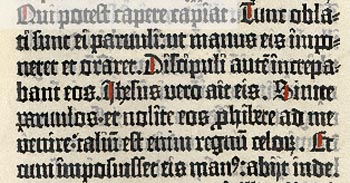 Qui potest capere capiat. Tunc obla-
ti sunt ei paruuli: ut manus eis impo-
neret et oraret. Discipuli autē increpa-
bant eos. Ihesus vero ait eis. Sinite
paruulos et nolite eos ꝓhibere ad me
venire: taliū est enim regnū celoꝝ. Et
cum imposuisset eis manꝰ: abijt inde.